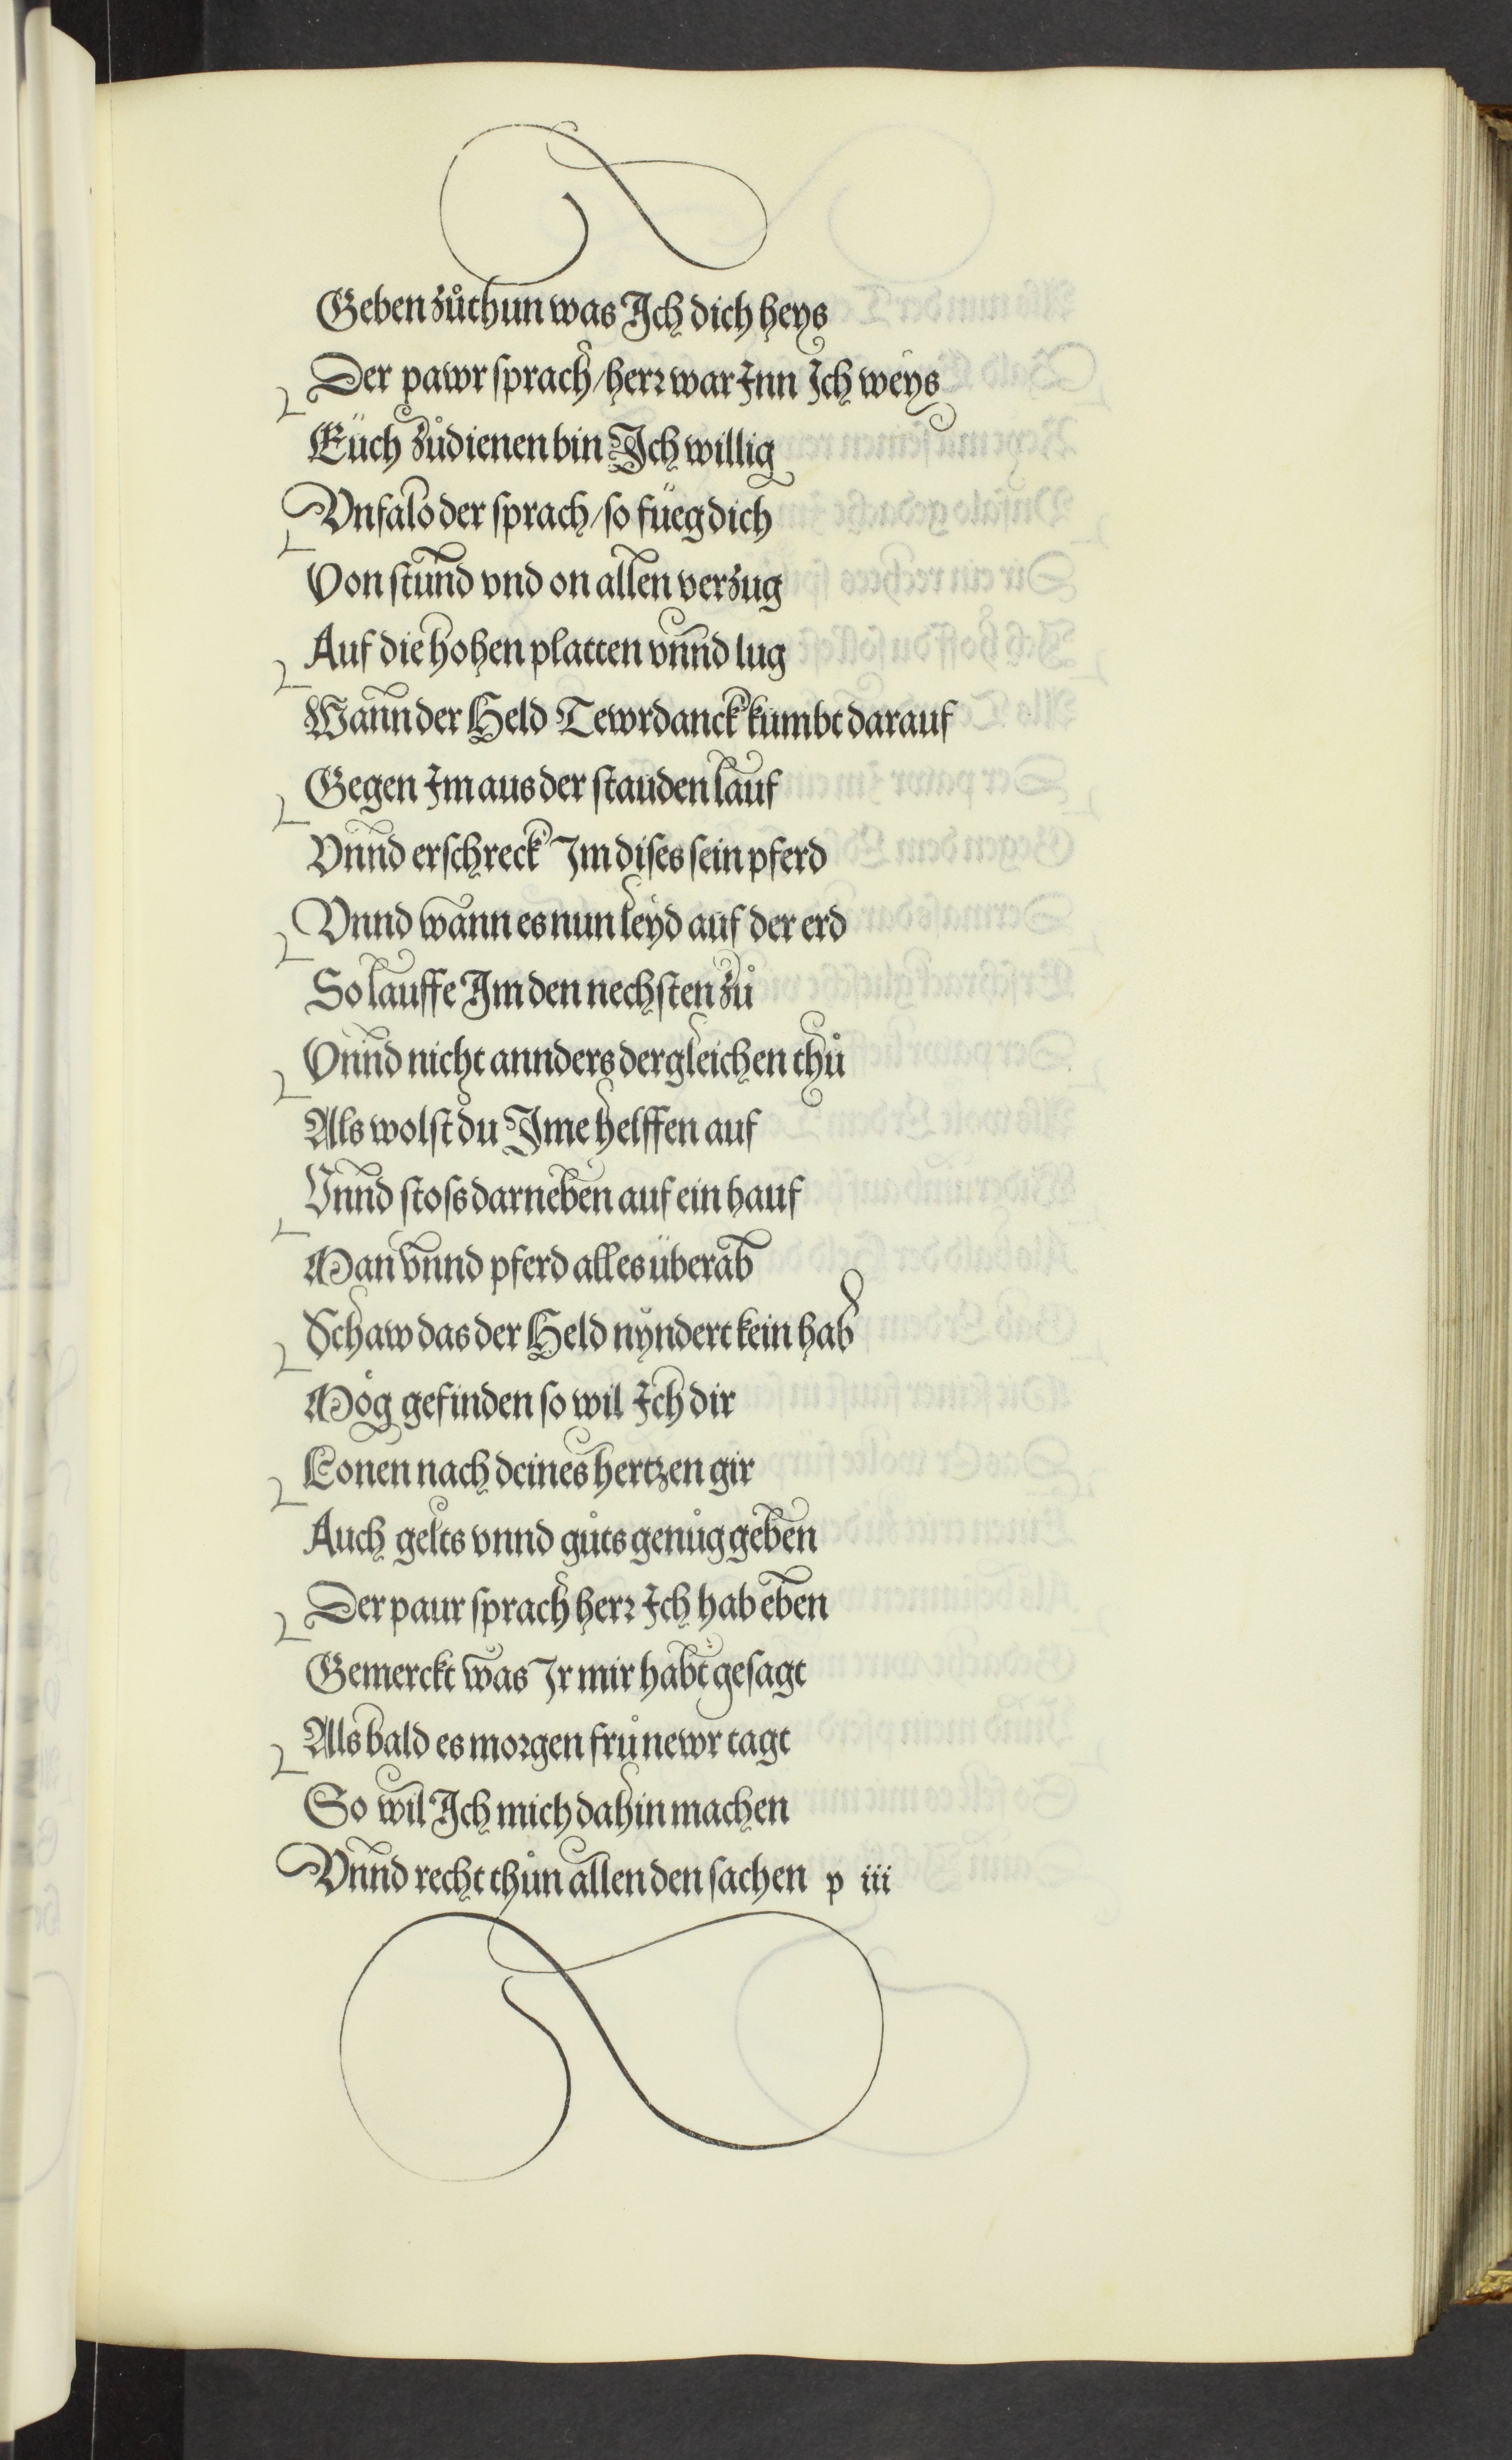 Geben zůthun was Ich dich heys
Der pawr sprach / herr war Inn Ich weys
Eüch zůdienen bin Ich willig
Vnfalo der sprach / so füeg dich
Von stund vnd on allen verzug
Auf die hohen platten vnnd lug
Wann der Held Tewrdanck kumbt darauf
Gegen Im aus der stauden lauf
Vnnd erschreck Im dises sein pferd
Vnnd wann es nun leyd auf der erd
So lauffe Im den nechsten zů
Vnnd nicht annders dergleichen thů
Als wolst du Ime helffen auf
Vnnd stoss darneben auf ein hauf
Man vnnd pferd alles überab
Schaw das der Held nyndert kein hab
Mög gefinden so wil Ich dir
Lonen nach deines hertzen gir
Auch gelts vnnd gůts genůg geben
Der paur sprach herr Ich hab eben
Gemerckt was Ir mir habt gesagt
Als bald es morgen frů newr tagt
So wil Ich mich dahin machen
Vnnd recht thůn allen den sachen p iii